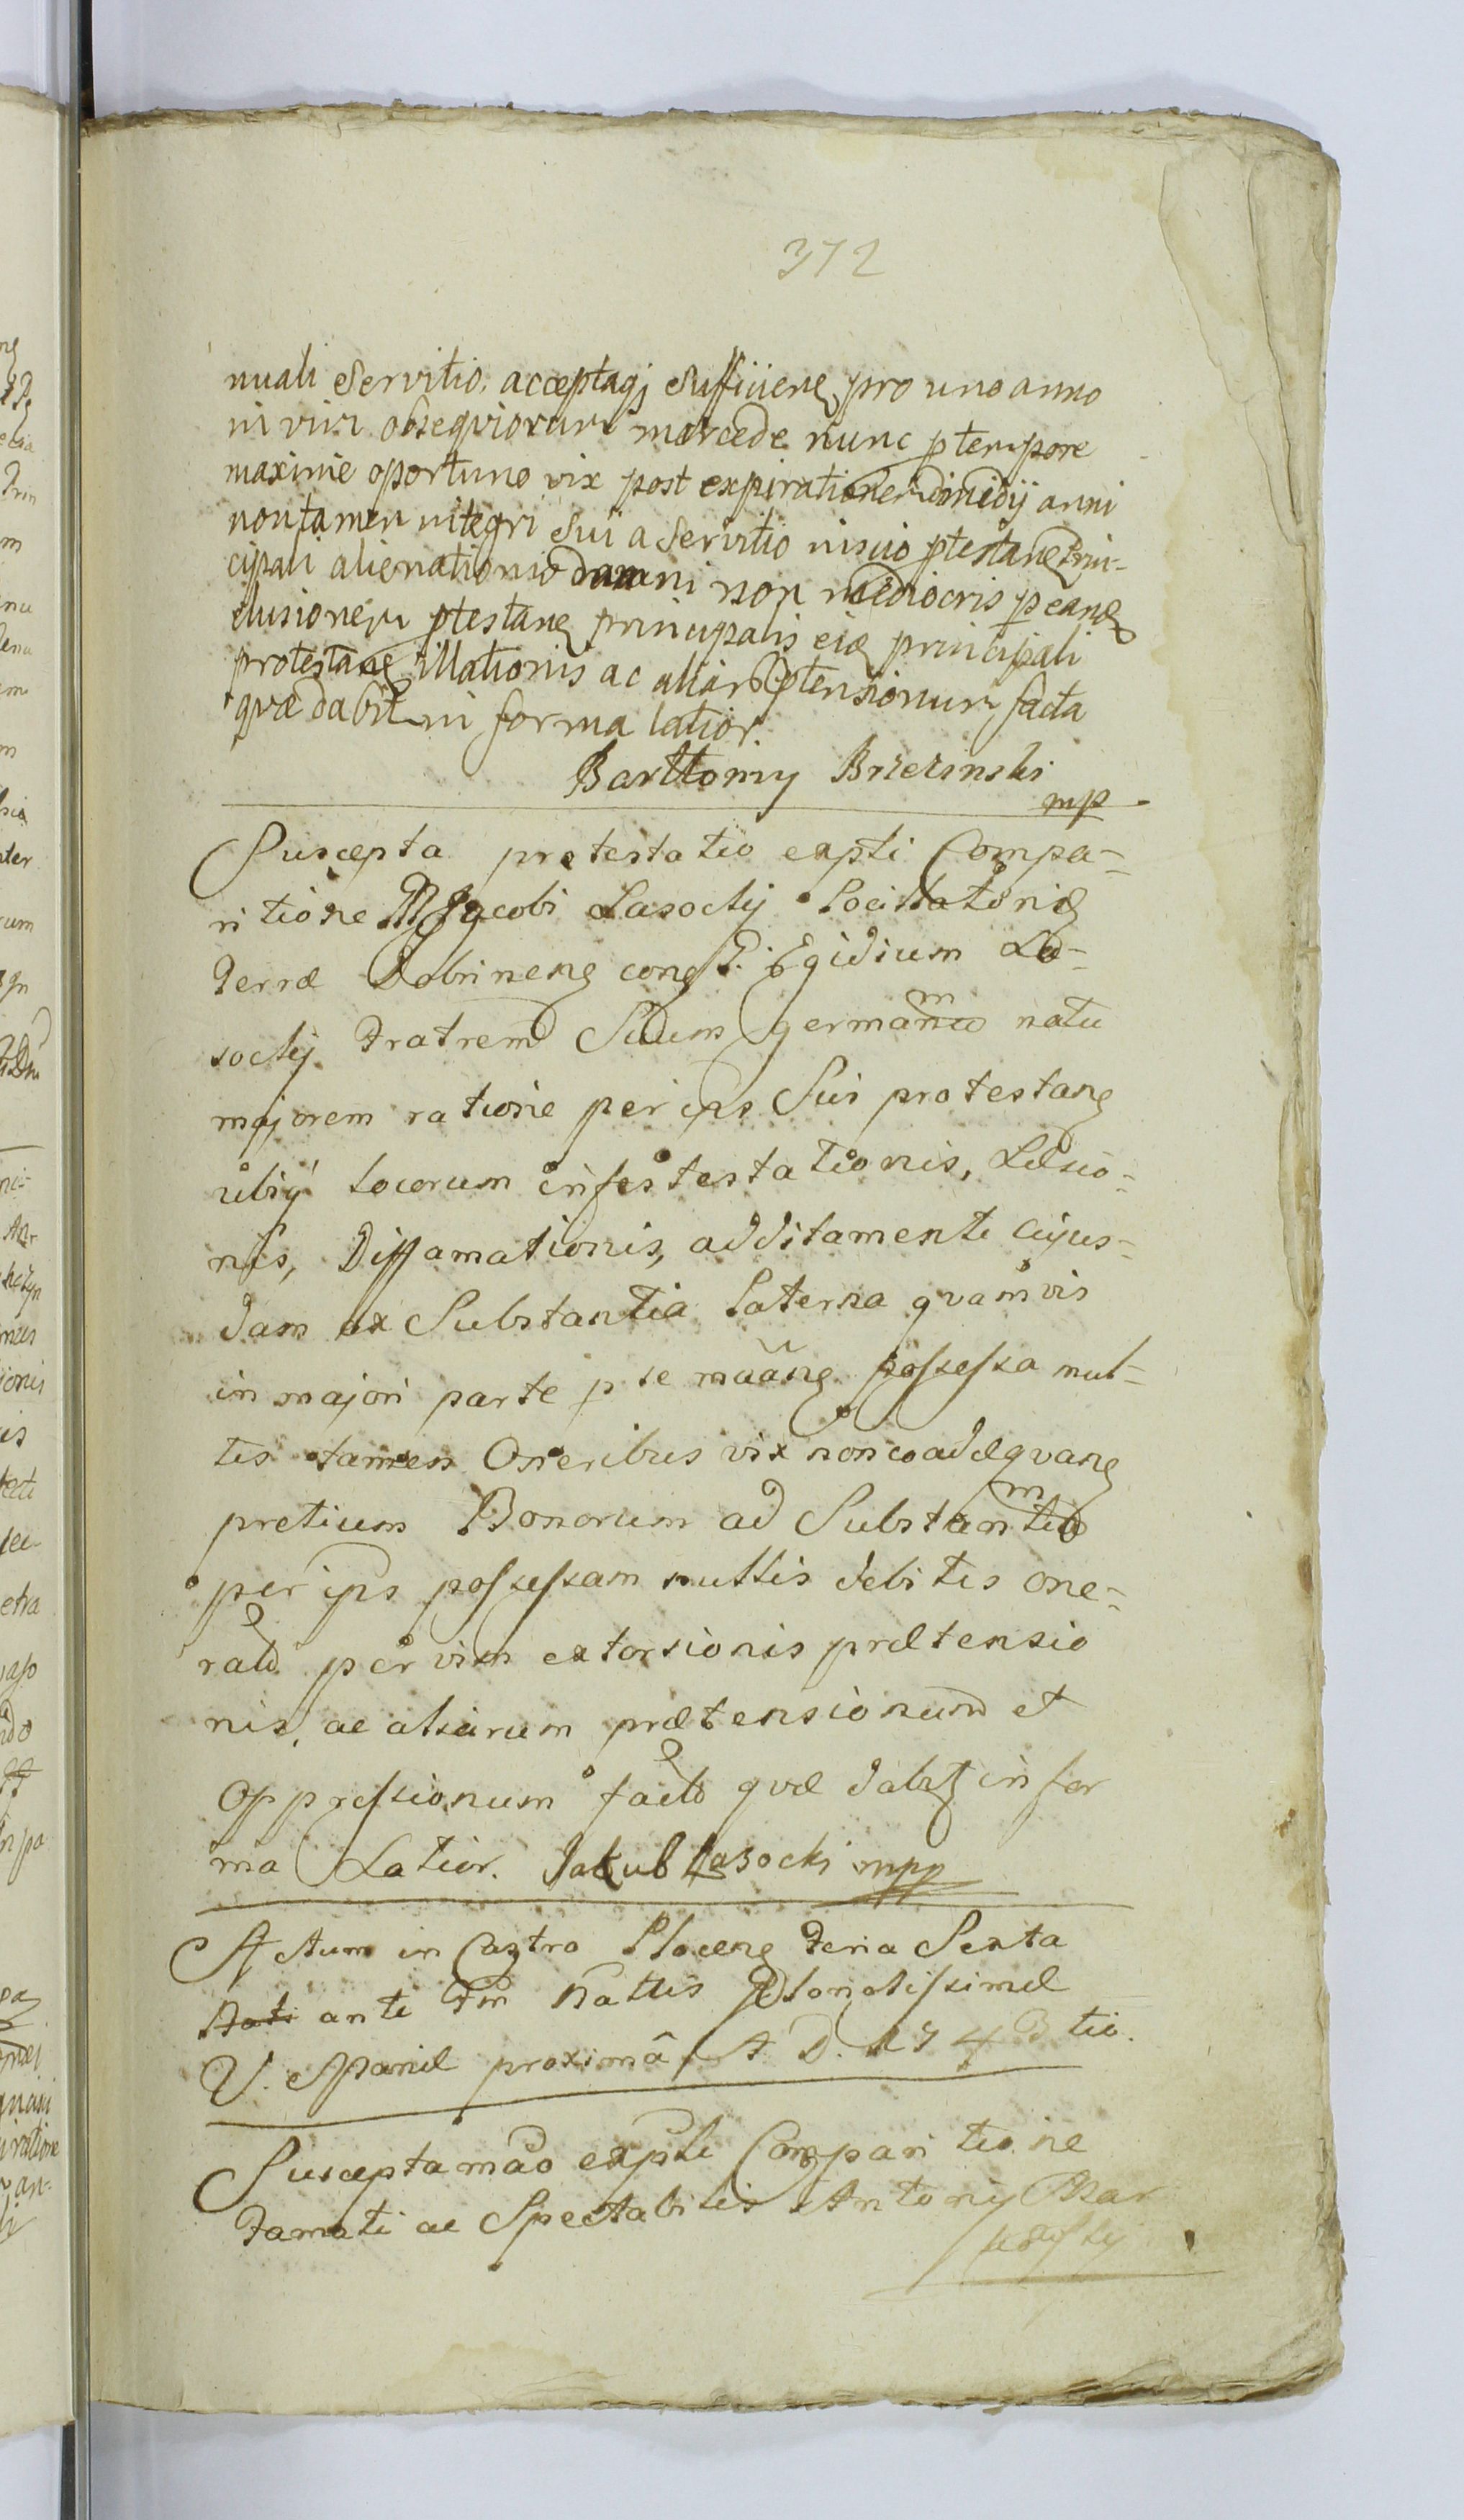 372
nuali Servitio, acceptaqj sufficiene pro uno anno
in vim obsequiorum mercede nunc p tempore
maxime oportuno vix post expirationem dimidij anni
non tamen integri sui a servitio nisuo ptestane Prin-
cipali alienationis damni non mediocris p eane
elusionem ptestane principalis eide principali
protestane illationis ac aliar ptensionum facta
quæ dabit in forma latior.
Barttomy Brzezinski
mp
Suscepta protestatio expti Compa-
ritione M Jacobi Lasockij Pocillatoride
Terræ Dobrinene cone P. Egidium La-
sockij Fratrem Suum germanum natu
majorem ratione per ips Sui protestane
ubiq locorum infestestationis, Læsio-
nis, Diffamationis, additamenti cujus-
dam ex Substantia Paterna quamvis
in majori parte p se possessa mul-
tis tamen Oneribus vix non coadæquane
pretium Bonorum ad Substantiam
per ips possessam multis debitis one-
rata per vim extorsionis prætensio
nis, ac aliarum prætensionum et
Oppressionum facta quæ dabit in for
ma Latior. Jakub Lasocki mpp
Actum in Castro Plocene Feria Sexta
ante Fm Nattis Glonotissimæ
V. Mariæ proximâ A D. 1743 tio.
Suscepta mão expti Comparitione
Famati ac Spectabilis Antonij Mar